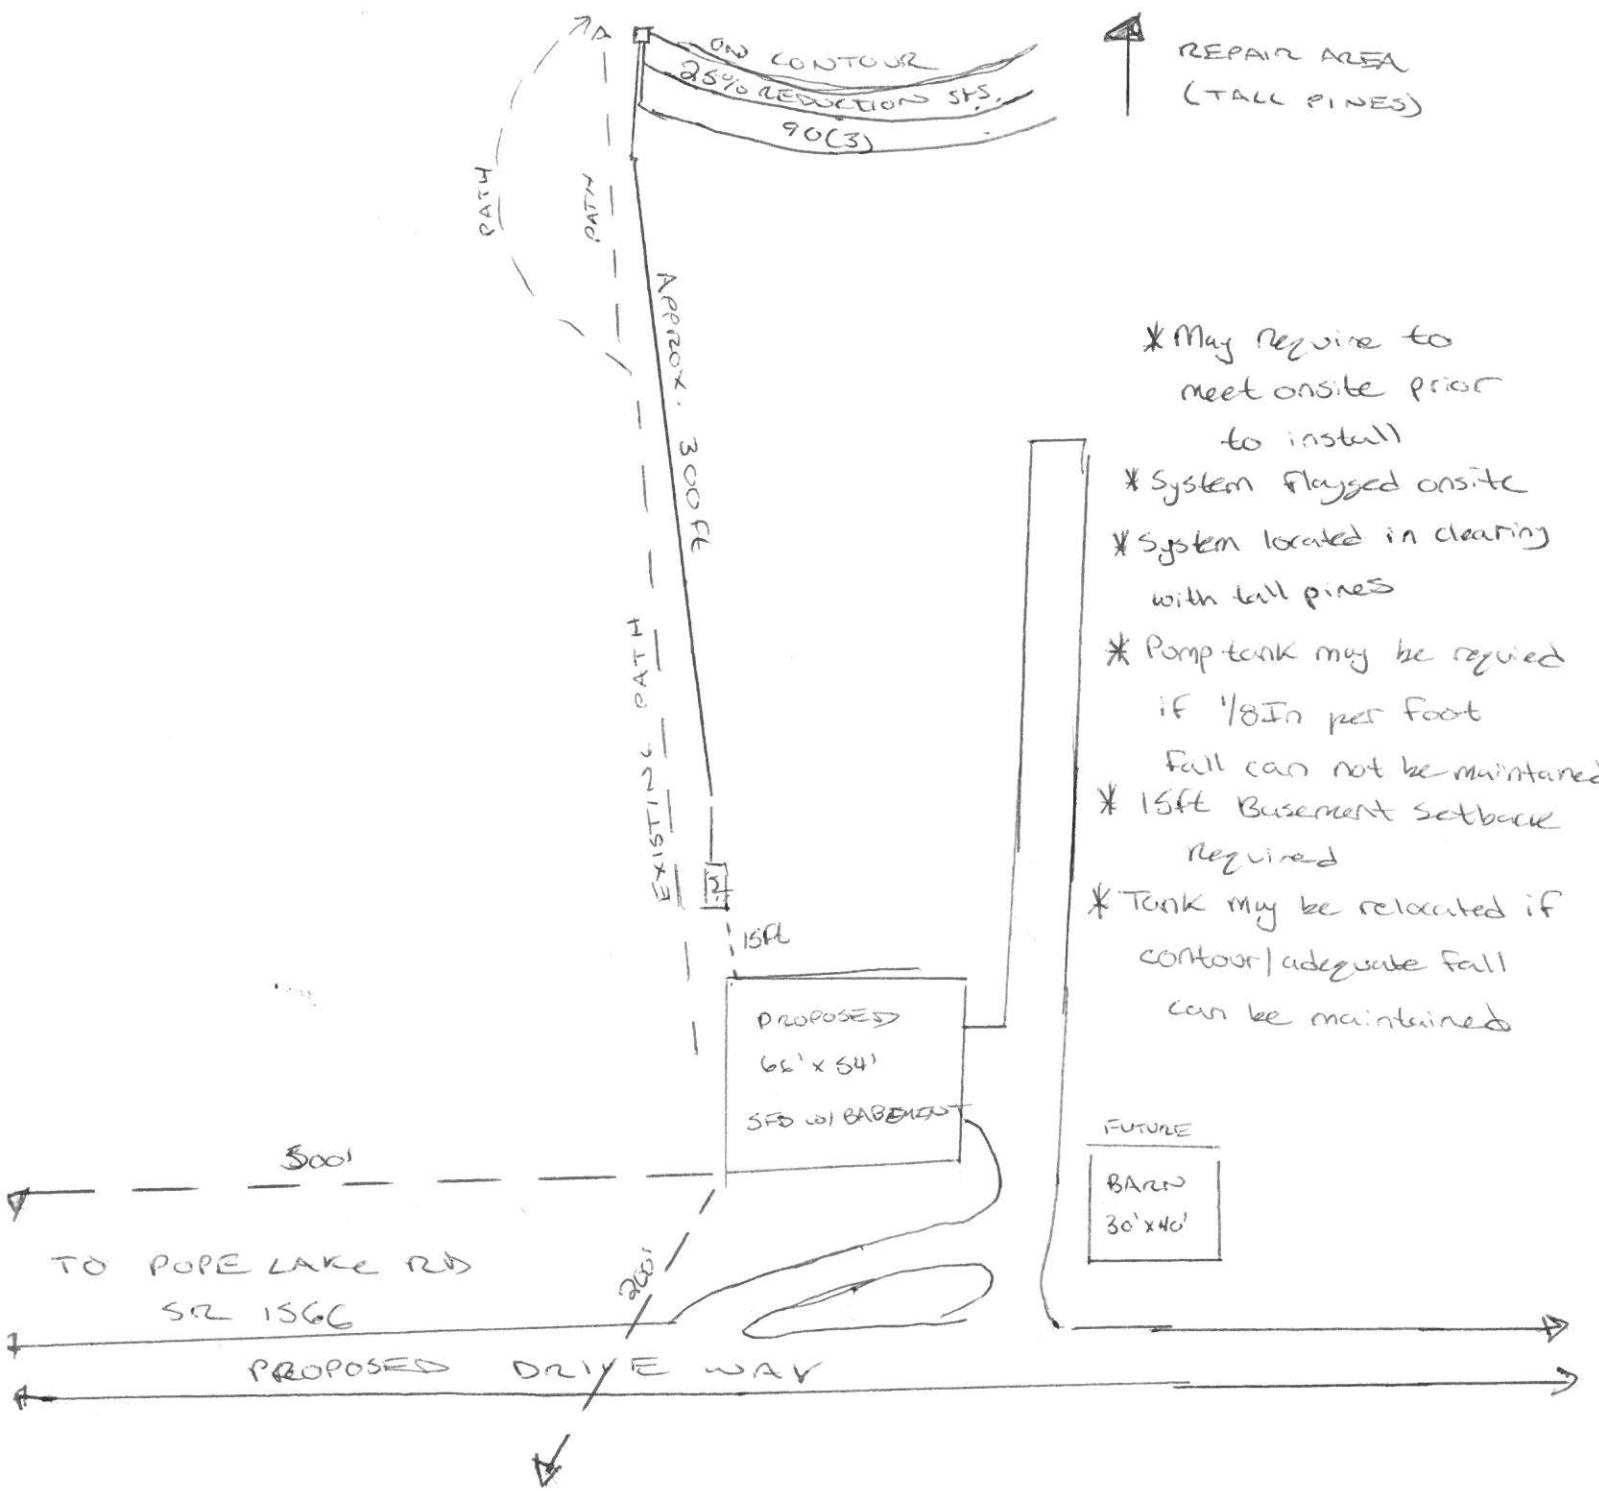 ON CONTOUR
25% REDUCTION SYS.
90(3)
REPAIR AREA
(TALL PINES)
PATH
PATH
APPROX. 300ft
* May Require to
meet onsite prior
to install
* System flagged onsite
* System located in clearing
with tall pines
* Pump tank may be requied
if 1/8In per foot
fall can not be maintained
* 15ft Basement setback
Required
* Tank may be relocated if
contour/adequate fall
can be maintained
EXISTING PATH
15ft
PROPOSED
66' x 54'
SFD w/ BASEMENT
FUTURE
BARN
30' x 40'
500'
TO POPE LAKE RD
SR 1566
200'
PROPOSED DRIVE WAY